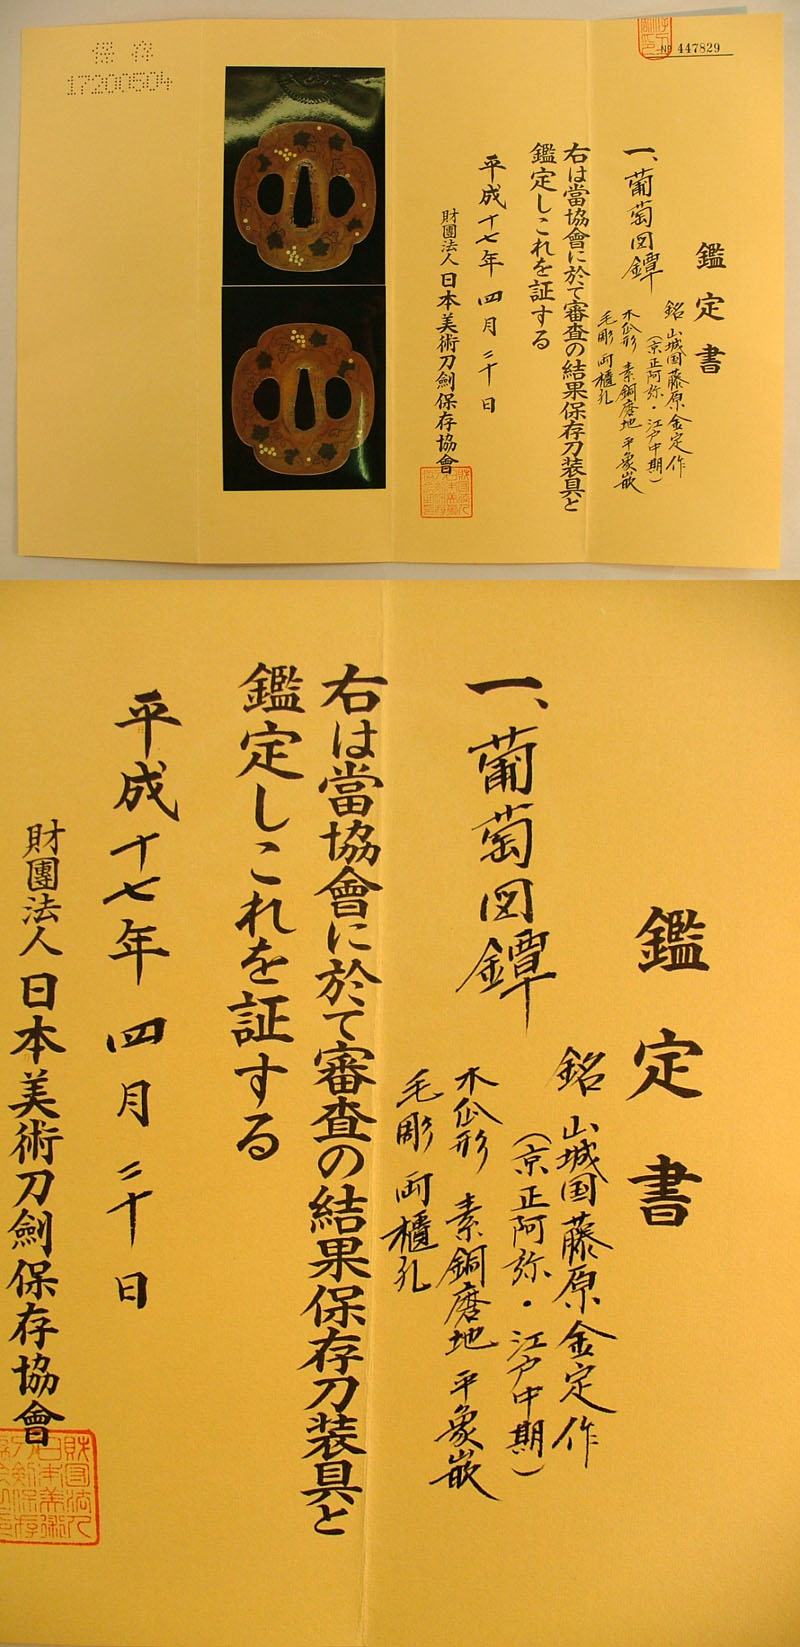 保存
17200504
№ 447829
鑑定書
一、葡萄図鐔
銘 山城国藤原金定作
（京正阿弥・江戸中期）
木瓜形 素銅磨地 平象嵌
毛彫 両櫃孔
右は當協會に於て審査の結果保存刀装具と
鑑定しこれを証する
平成十七年 四月 二十日
財團法人 日本美術刀劍保存協會
鑑定書
一、葡萄図鐔
銘 山城国藤原金定作
（京正阿弥・江戸中期）
木瓜形 素銅磨地 平象嵌
毛彫 両櫃孔
右は當協會に於て審査の結果保存刀装具と
鑑定しこれを証する
平成十七年 四月 二十日
財團法人 日本美術刀劍保存協會